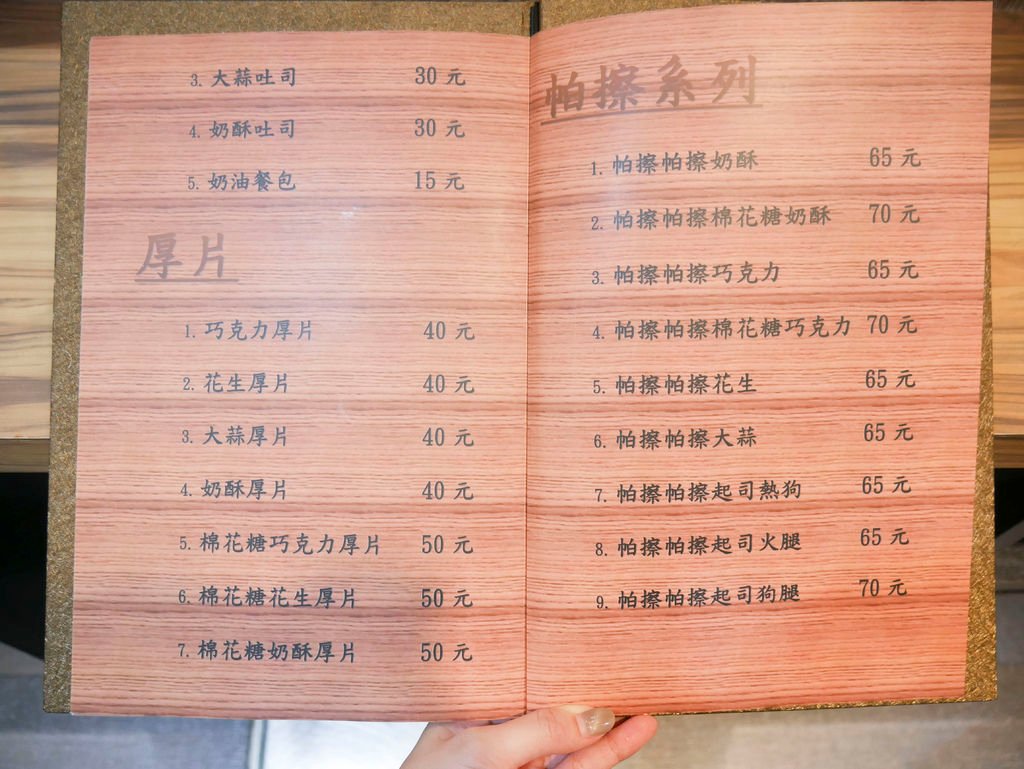 3. 大蒜吐司 30 元
4. 奶酥吐司 30 元
5. 奶油餐包 15 元
厚片
1. 巧克力厚片 40 元
2. 花生厚片 40 元
3. 大蒜厚片 40 元
4. 奶酥厚片 40 元
5. 棉花糖巧克力厚片 50 元
6. 棉花糖花生厚片 50 元
7. 棉花糖奶酥厚片 50 元
帕擦系列
1. 帕擦帕擦奶酥 65 元
2. 帕擦帕擦棉花糖奶酥 70 元
3. 帕擦帕擦巧克力 65 元
4. 帕擦帕擦棉花糖巧克力 70 元
5. 帕擦帕擦花生 65 元
6. 帕擦帕擦大蒜 65 元
7. 帕擦帕擦起司熱狗 65 元
8. 帕擦帕擦起司火腿 65 元
9. 帕擦帕擦起司狗腿 70 元